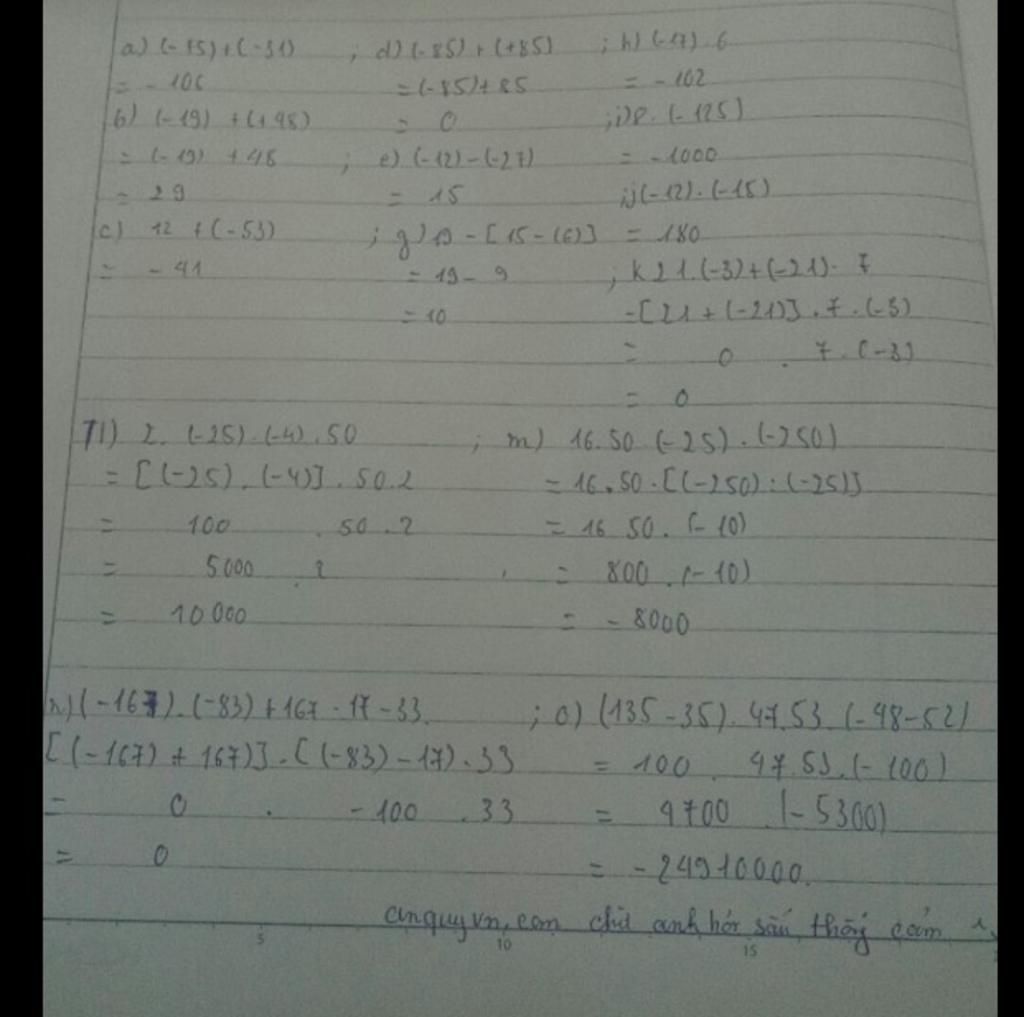 a) (-75)+(-31) ; d) (-85) + (+85) ; h) (-17).6
= -106 = (-85)+85 = -102
b) (-19) + (+48) = 0 ; i) 8. (-125)
= (-19) + 48 ; e) (-12) - (-27) = -1000
= 29 = 15 ; j (-12). (-15)
c) 12 + (-53) ; g) 19 - [15 - (6)] = 180
= -41 = 19 - 9 ; k 21.(-3)+(-21). 7
= 10 =[21 + (-21)] . 7 . (-3)
= 0 . 7 . (-3)
= 0
l) 2. (-25).(-4).50 ; m) 16.50.(-25).(-250)
= [(-25).(-4)].50.2 = 16.50.[(-250):(-25)]
= 100 . 50.2 = 16.50. (-10)
= 5000 . 2 = 800 . (-10)
= 10000 = -8000
n) (-167).(-83)+167.17-33. ; o) (135-35).47.53.(-48-52)
[(-167)+167)].[(-83)-17).33 = 100 . 47.53.(-100)
= 0 . -100 .33 = 4700 .(-5300)
= 0 = -24910000.
anquyvn.com chữ anh hơi xấu thông cảm
5 10 15